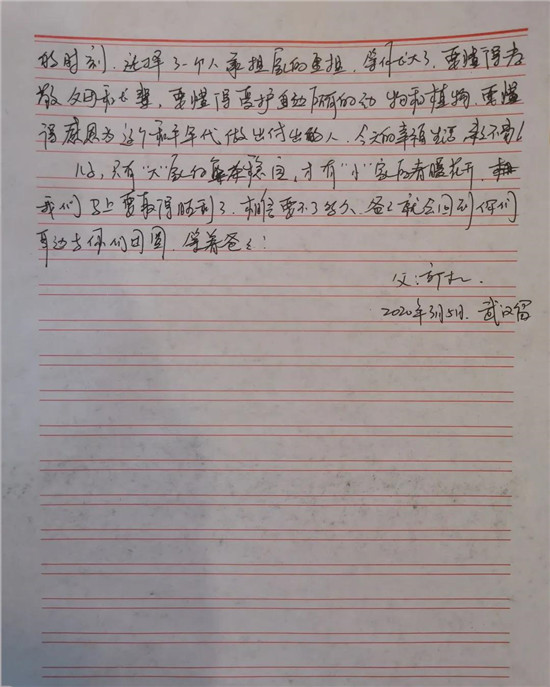 的时刻，选择了一个人承担家的重担。等你长大了，要懂得孝
敬父母和长辈，要懂得爱护身边所有的动物和植物，要懂
得感恩为这个和平年代做出付出的人，今天的幸福生活来之不易！
儿子，只有“大”家的 稳住，才有“小”家的春暖花开，
我们马上要取得胜利了，相信要不了多久，爸爸就会回到你们
身边与你们团圆，等着爸爸！
父：
2020年3月5日. 武汉留